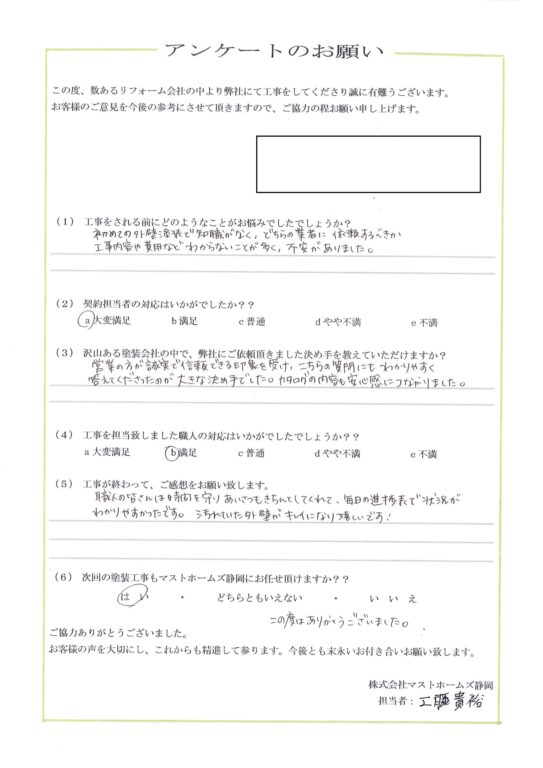 アンケートのお願い
この度、数あるリフォーム会社の中より弊社にて工事をしてくださり誠に有難うございます。
お客様のご意見を今後の参考にさせて頂きますので、ご協力の程お願い申し上げます。
(1) 工事をされる前にどのようなことがお悩みでしたでしょうか？
初めての外壁塗装で知識がなく、どちらの業者に依頼するべきか
工事内容や費用などわからないことが多く、不安がありました。
(2) 契約担当者の対応はいかがでしたか？？
a 大変満足 b 満足 c 普通 d やや不満 e 不満
(3) 沢山ある塗装会社の中で、弊社にご依頼頂きました決め手を教えていただけますか？
営業の方が誠実で信頼できる印象を受け、こちらの質問にもわかりやすく
答えてくださったのが大きな決め手でした。カタログの内容も安心感につながりました。
(4) 工事を担当致しました職人の対応はいかがでしたでしょうか？
a 大変満足 b 満足 c 普通 d やや不満 e 不満
(5) 工事が終わって、ご感想をお願い致します。
職人の皆さんは時間を守りあいさつもきちんとしてくれて、毎日の進捗表で状況が
わかりやすかったです。汚れていた外壁がキレイになり嬉しいです！
(6) 次回の塗装工事もマストホームズ静岡にお任せ頂けますか？？
はい ・ どちらともいえない ・ いいえ
この度はありがとうございました。
ご協力ありがとうございました。
お客様の声を大切にし、これからも精進して参ります。今後とも末永いお付き合いお願い致します。
株式会社マストホームズ静岡
担当者：工藤貴裕